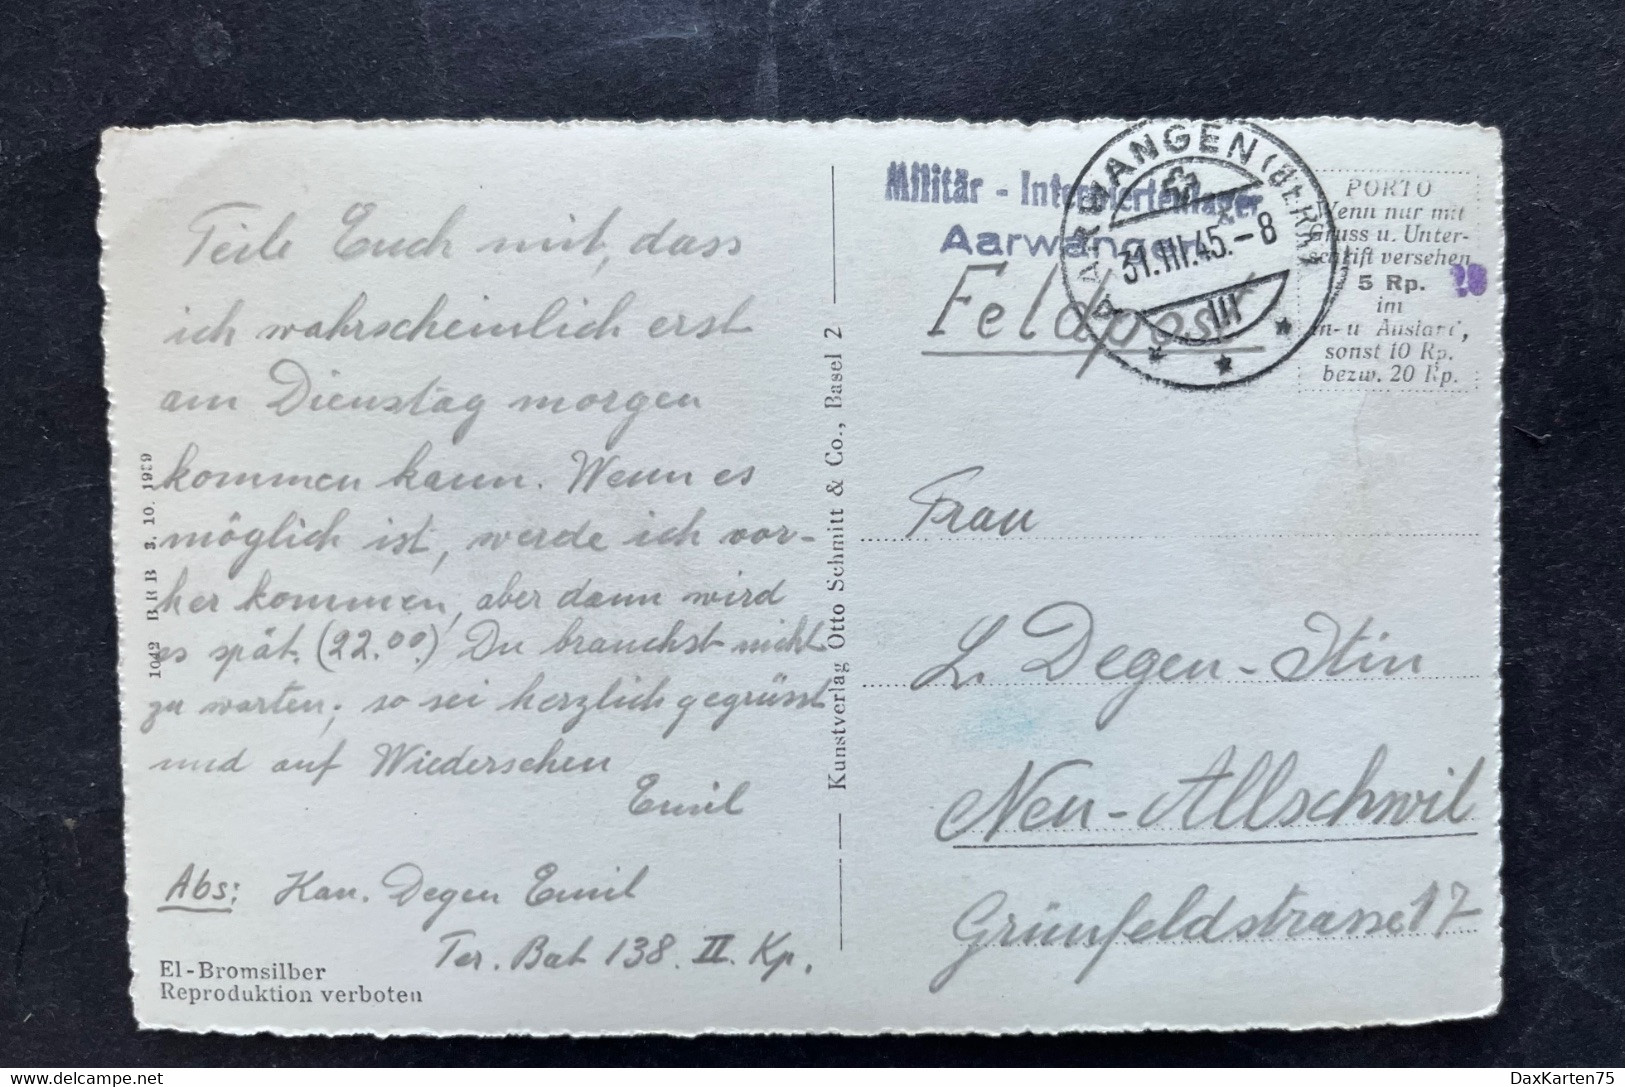 Teile Euch mit, dass
ich wahrscheinlich erst
am Dienstag morgen
kommen kann. Wenn es
möglich ist, werde ich vor-
her kommen, aber dann wird
es spät. (22.00.) Du brauchst nicht
zu warten; so sei herzlich gegrüsst
und auf Wiedersehen
Emil
Abs: Kan. Degen Emil
Ter. Bat 138. II. Kp.
El-Bromsilber
Reproduktion verboten
1042 BRB 3. 10. 1939
Kunstverlag Otto Schmitt & Co., Basel 2
Militär - Interniertenlager
Aarwangen
Feldpost
AARWANGEN (BERN)
31.III.45.-8
III
PORTO
Wenn nur mit
Gruss u. Unter-
schrift versehen
5 Rp.
im
In- u Ausland,
sonst 10 Rp.
bezw. 20 Rp.
Frau
L. Degen-Itin
Neu-Allschwil
Grünfeldstrasse 17
delcampe.net
DaxKarten75